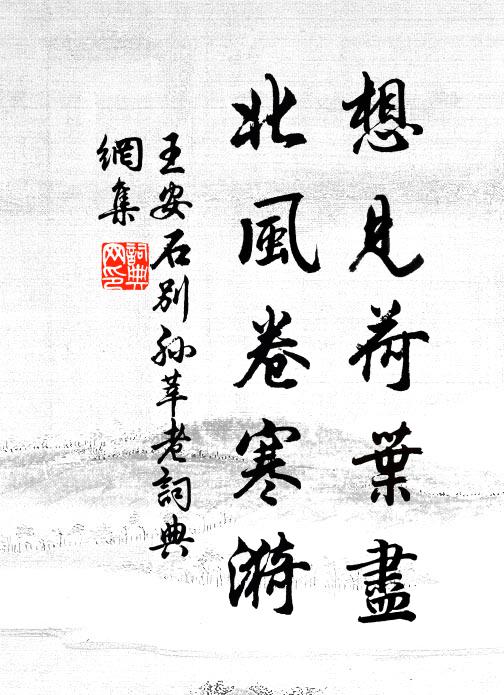 想見荷葉盡
北風卷寒漪
王安石別孫莘老詞典
網集
詞典網印